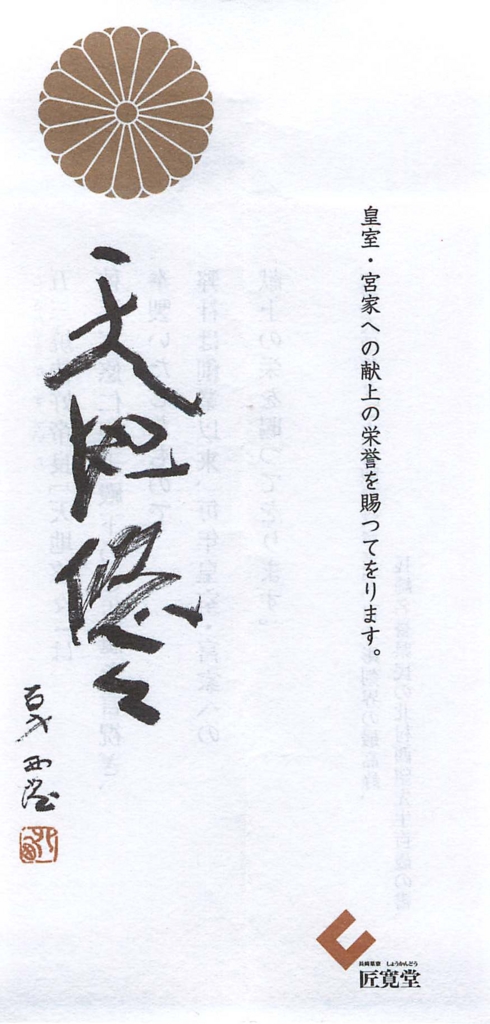 皇室・宮家への献上の栄誉を賜つてをります。
天地悠々
百才 西望
長崎菓寮 しょうかんどう
匠寛堂